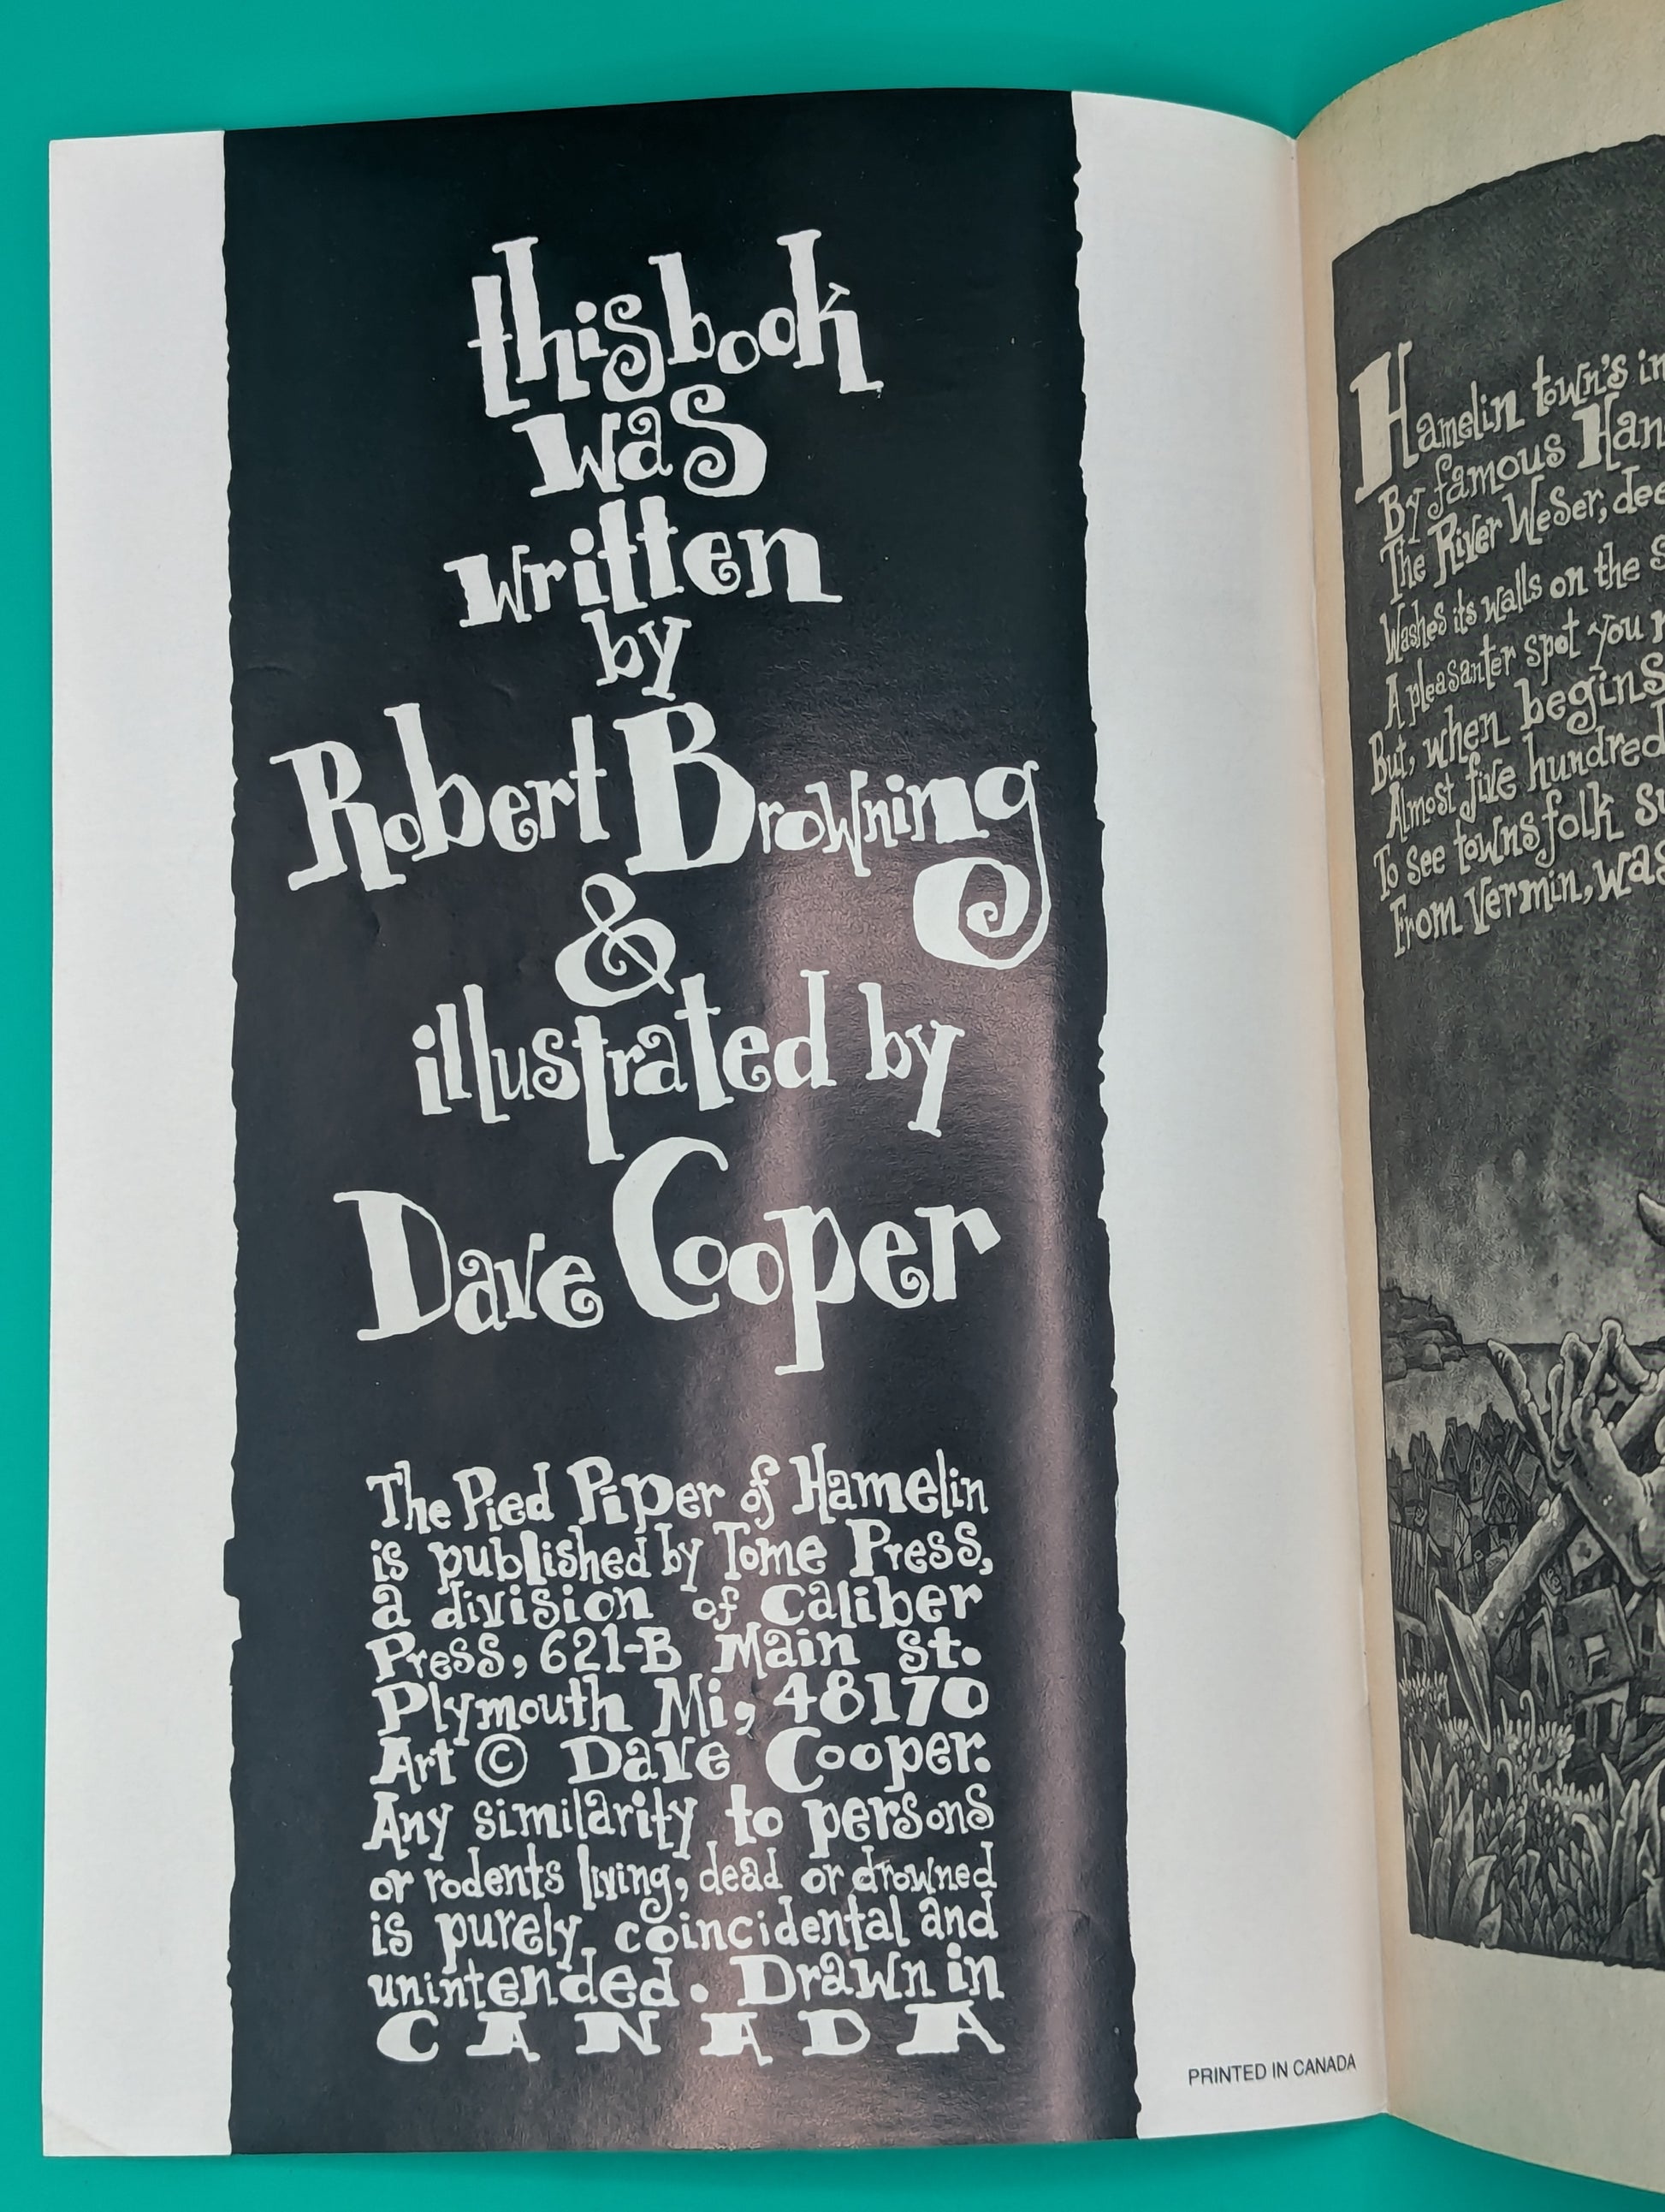 this book
was
written
by
Robert Browning
&
illustrated by
Dave Cooper
The Pied Piper of Hamelin
is published by Tome Press,
a division of Caliber
Press, 621-B Main St.
Plymouth Mi, 48170
Art © Dave Cooper.
Any similarity to persons
or rodents living, dead or drowned
is purely coincidental and
unintended. Drawn in
CANADA
PRINTED IN CANADA
Hamelin town's in
By famous
The River Weser,
Washes its walls on the
A pleasanter spot you
But, when begins
Almost five hundred
To see townsfolk
From vermin,